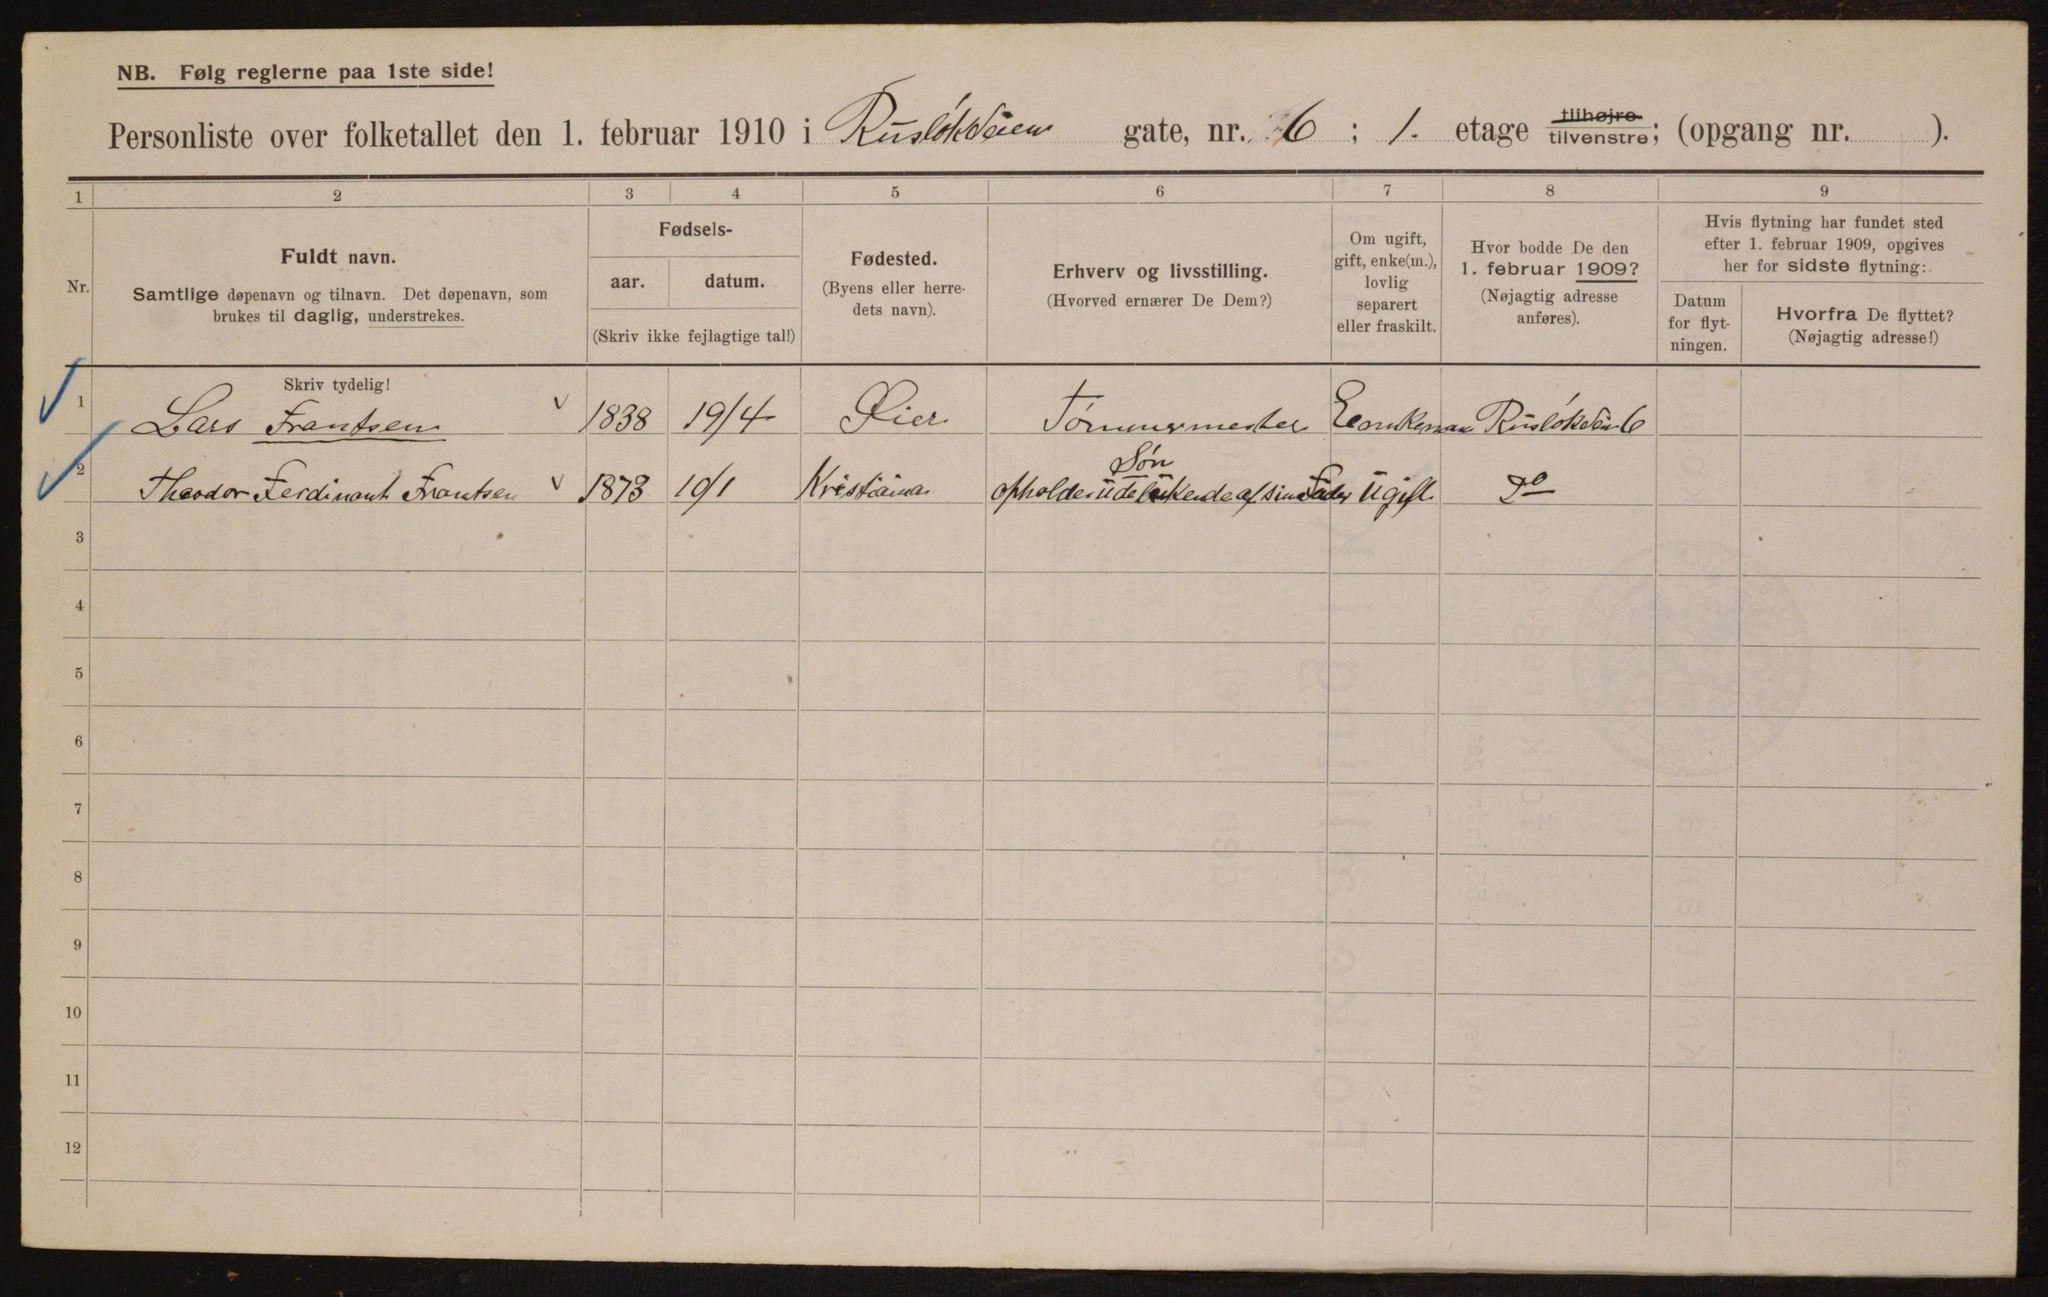 NB. Følg reglerne paa 1ste side!
Personliste over folketallet den 1. februar 1910 i Rusløkveien gate, nr. 6 ; 1. etage tilhøjre tilvenstre; (opgang nr. ).
1 2 3 4 5 6 7 8 9
Nr.
Fuldt navn.
Samtlige døpenavn og tilnavn. Det døpenavn, som
brukes til daglig, understrekes.
Skriv tydelig!
Fødsels-
aar. datum.
(Skriv ikke fejlagtige tal!)
Fødested.
(Byens eller herre-
dets navn).
Erhverv og livsstilling.
(Hvorved ernærer De Dem?)
Om ugift,
gift, enke(m.),
lovlig
separert
eller fraskilt.
Hvor bodde De den
1. februar 1909?
(Nøjagtig adresse
anføres).
Hvis flytning har fundet sted
efter 1. februar 1909, opgives
her for sidste flytning:
Datum
for flyt-
ningen.
Hvorfra De flyttet?
(Nøjagtig adresse!)
1 Lars Frantsen 1838 19/4 Øier Tømmermester Rusløkvei 6
2 Theodor Ferdinant Frantsen 1873 10/1 Kristiania Søn af sin Fader Ugift Do
3
4
5
6
7
8
9
10
11
12